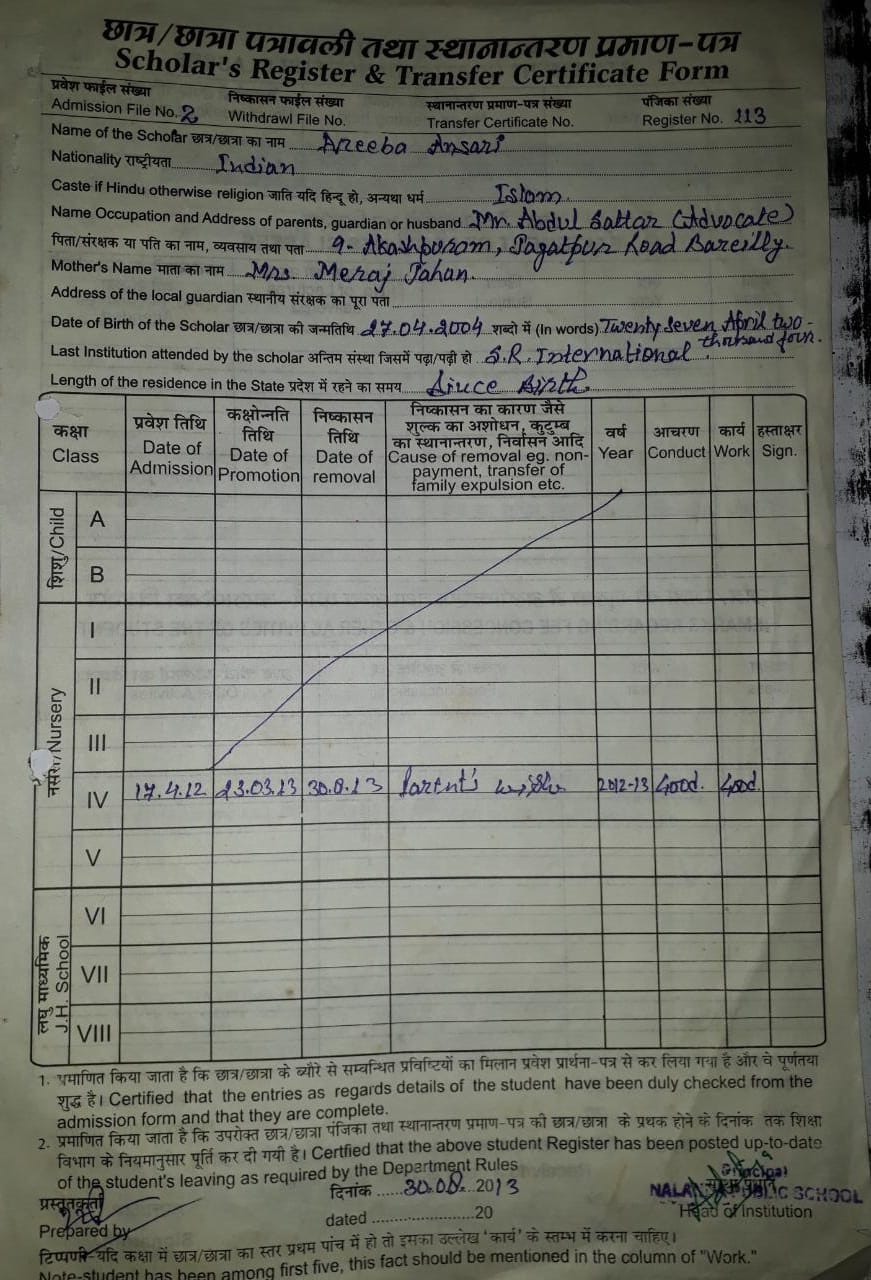 छात्र/छात्रा पत्रावली तथा स्थानान्तरण प्रमाण-पत्र
Scholar's Register & Transfer Certificate Form
प्रवेश फाईल संख्या निष्कासन फाईल संख्या स्थानान्तरण प्रमाण-पत्र संख्या पंजिका संख्या
Admission File No. 2 Withdrawl File No. Transfer Certificate No. Register No. 113
Name of the Scholar छात्र/छात्रा का नाम Areeba Ansari
Nationality राष्ट्रीयता Indian
Caste if Hindu otherwise religion जाति यदि हिन्दू हो, अन्यथा धर्म Islam
Name Occupation and Address of parents, guardian or husband Mr. Abdul Sattar (Advocate)
पिता/संरक्षक या पति का नाम, व्यवसाय तथा पता 9- Akashpuram, Jagatpur Road Bareilly.
Mother's Name माता का नाम Mrs. Meraj Jahan.
Address of the local guardian स्थानीय संरक्षक का पूरा पता
Date of Birth of the Scholar छात्र/छात्रा की जन्मतिथि 27.04.2004 शब्दो में (In words) Twenty Seven April two-
thousand four.
Last Institution attended by the scholar अन्तिम संस्था जिसमें पढ़ा/पढ़ी हो S.R. International
Length of the residence in the State प्रदेश में रहने का समय Since Birth
कक्षा प्रवेश तिथि कक्षोन्नति तिथि निष्कासन तिथि निष्कासन का कारण जैसे शुल्क का अशोधन, कुटुम्ब का स्थानान्तरण, निर्वासन आदि वर्ष आचरण कार्य हस्ताक्षर
Class Date of Admission Date of Promotion Date of removal Cause of removal eg. non-payment, transfer of family expulsion etc. Year Conduct Work Sign.
शिशु/Child
A
B
नर्सरी/Nursery
I
II
III
IV 17.4.12 23.03.13 30.8.13 Parent's wish 2012-13 Good. Good
V
लघु माध्यमिक
J.H. School
VI
VII
VIII
1. प्रमाणित किया जाता है कि छात्र/छात्रा के ब्यौरे से सम्बन्धित प्रविष्टियों का मिलान प्रवेश प्रार्थना-पत्र से कर लिया गया है और वे पूर्णतया
शुद्ध है। Certified that the entries as regards details of the student have been duly checked from the
admission form and that they are complete.
2. प्रमाणित किया जाता है कि उपरोक्त छात्र/छात्रा पंजिका तथा स्थानान्तरण प्रमाण-पत्र की छात्र/छात्रा के प्रथक होने के दिनांक तक शिक्षा
विभाग के नियमानुसार पूर्ति कर दी गयी है। Certfied that the above student Register has been posted up-to-date
of the student's leaving as required by the Department Rules
प्रस्तुतकर्ता दिनांक 30.08. 2013 Principal
NALANDA PUBLIC SCHOOL
Prepared by dated 20 Head of Institution
टिप्पणी-यदि कक्षा में छात्र/छात्रा का स्तर प्रथम पांच में हो तो इसका उल्लेख 'कार्य' के स्तम्भ में करना चाहिए।
Note-student has been among first five, this fact should be mentioned in the column of "Work."